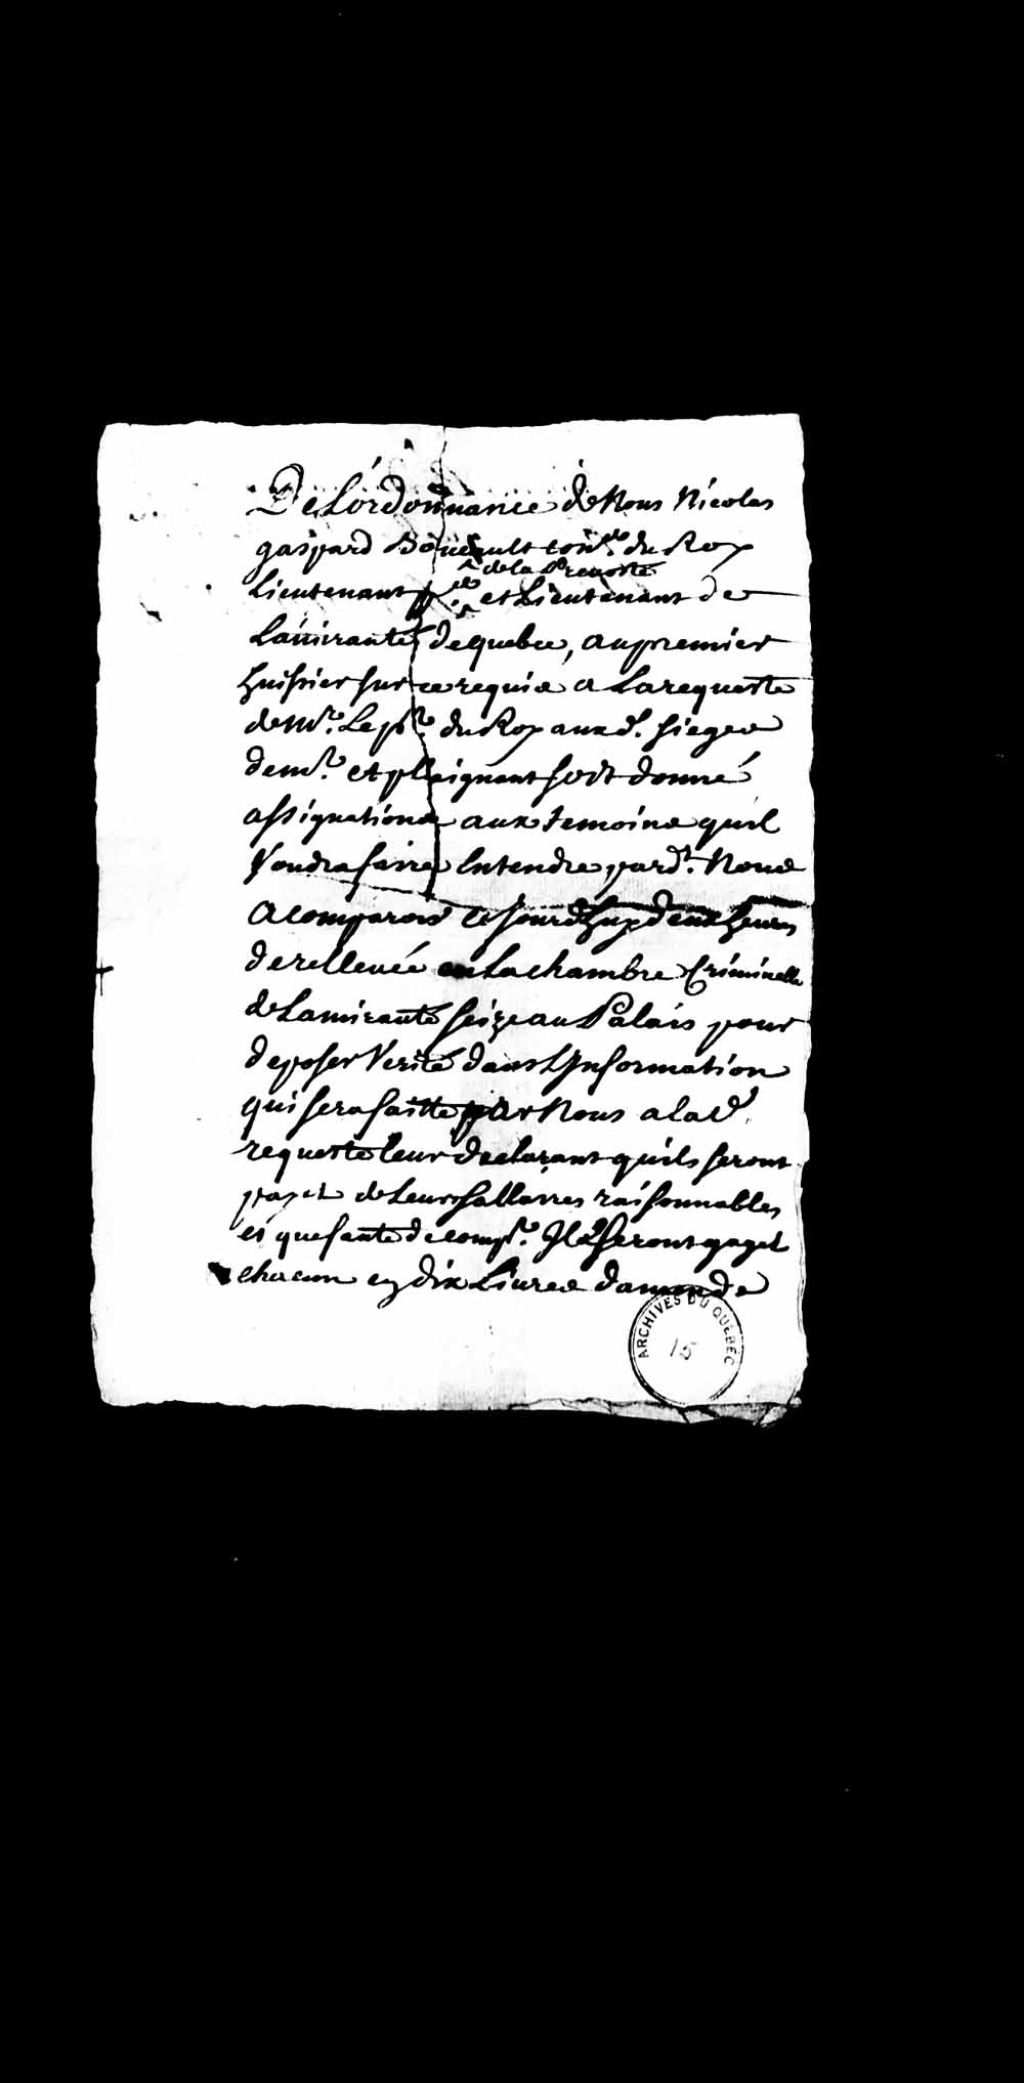 De Lordonnance de Nous Nicolas
gaspard Boucault con.er du Roy
de la Prevosté
Lieutenant p.er et Lieutenant de
Lamirauté de quebec, au premier
huissier sur ce requis a La requeste
de M.r Le p.r du Roy aux d. sieges
dem.r et plaignant soit donné
assignations aux temoins quil
Voudra faire Entendre pard.t Nous
A comparoir ce jourdhuy deux heures
de rellevée en La chambre Criminelle
de Lamirauté seize au Palais pour
deposer Verité dans LJnformation
qui sera faitte par Nous a la d.
requeste leur declarant quils seront
payez de Leurs sallaires raisonnables
et que faute de comp.r Jls seront gagez
chacun en dix Livres damande
ARCHIVES DU QUÉBEC
15